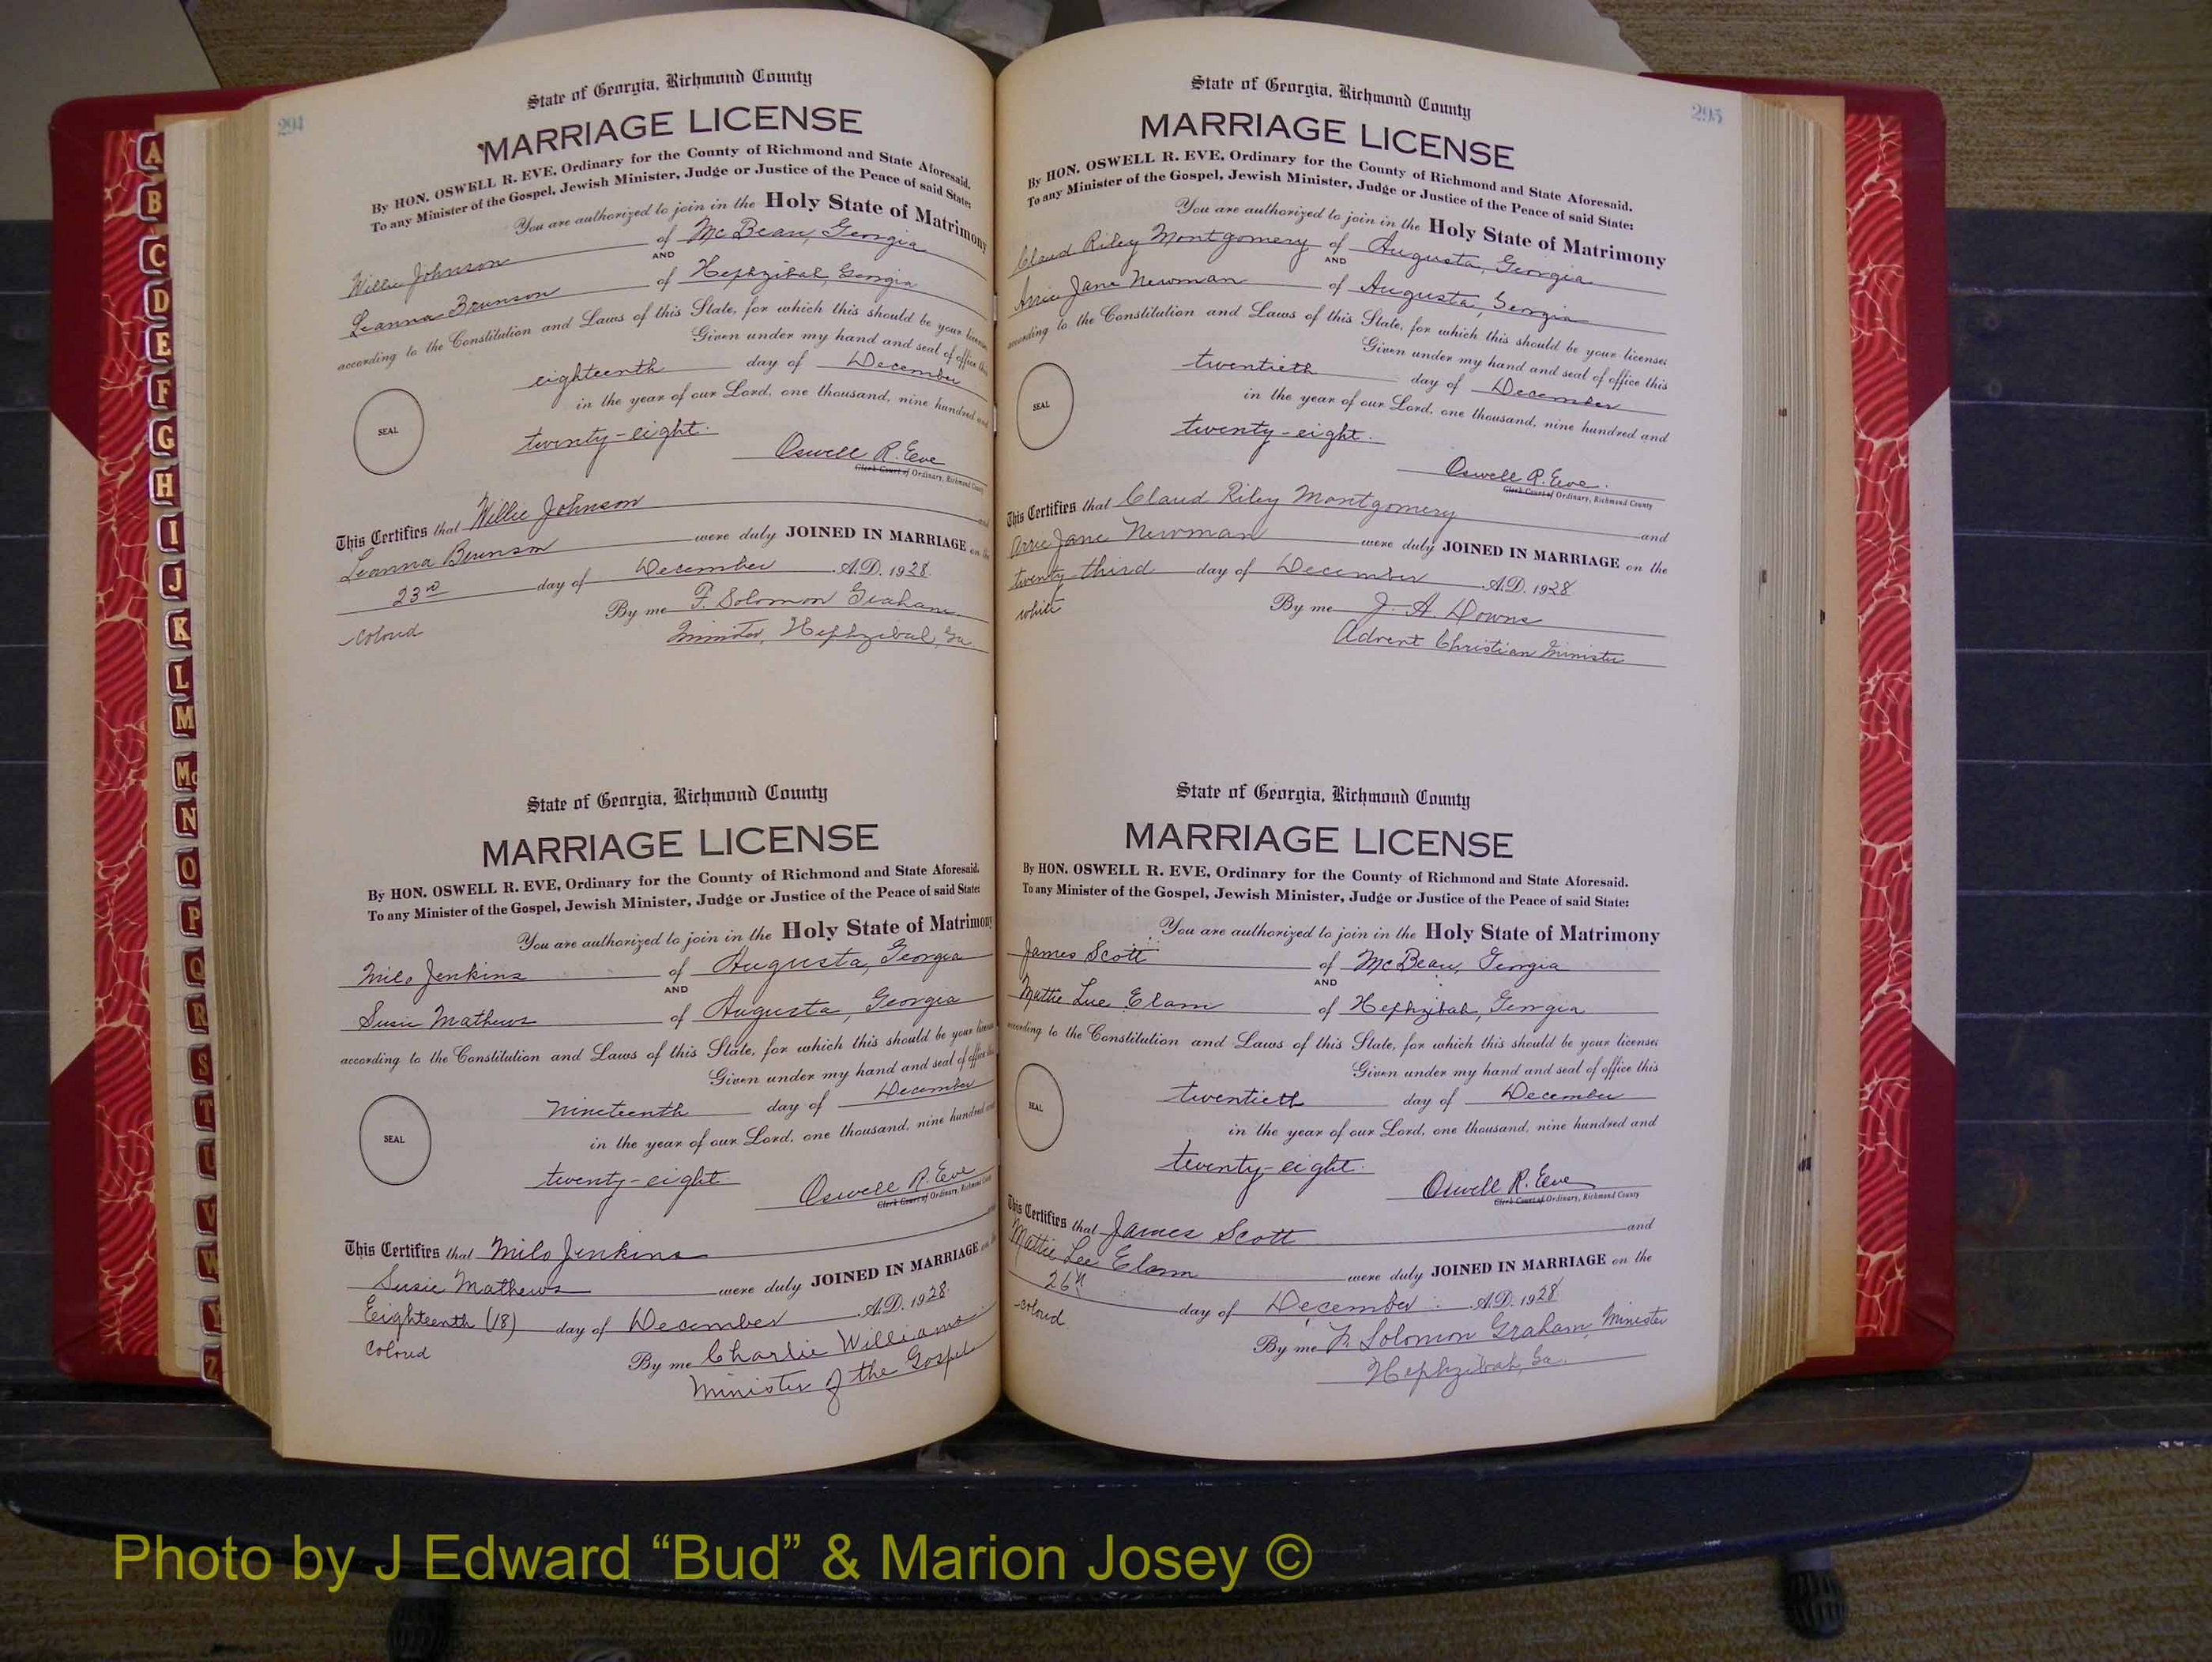 294
State of Georgia, Richmond County
MARRIAGE LICENSE
By HON. OSWELL R. EVE, Ordinary for the County of Richmond and State Aforesaid.
To any Minister of the Gospel, Jewish Minister, Judge or Justice of the Peace of said State:
You are authorized to join in the Holy State of Matrimony
Willie Johnson of McBean, Georgia
AND
Leanna Brunson of Hephzibah, Georgia
according to the Constitution and Laws of this State, for which this should be your license
Given under my hand and seal of office this
eighteenth day of December
in the year of our Lord, one thousand, nine hundred and
SEAL
twenty-eight.
Oswell R. Eve
Clerk Court of Ordinary, Richmond County
This Certifies that Willie Johnson and
Leanna Brunson were duly JOINED IN MARRIAGE on the
23rd day of December A.D. 1928
By me F. Solomon Graham
colored
Minister, Hephzibah, Ga.
State of Georgia, Richmond County
MARRIAGE LICENSE
By HON. OSWELL R. EVE, Ordinary for the County of Richmond and State Aforesaid.
To any Minister of the Gospel, Jewish Minister, Judge or Justice of the Peace of said State:
You are authorized to join in the Holy State of Matrimony
Milo Jenkins of Augusta, Georgia
AND
Susie Mathews of Augusta, Georgia
according to the Constitution and Laws of this State, for which this should be your license
Given under my hand and seal of office this
nineteenth day of December
in the year of our Lord, one thousand, nine hundred and
SEAL
twenty-eight
Oswell R. Eve
Clerk Court of Ordinary, Richmond County
This Certifies that Milo Jenkins and
Susie Mathews were duly JOINED IN MARRIAGE on the
Eighteenth (18) day of December A.D. 1928
Colored
By me Charlie Williams
Minister of the Gospel
295
State of Georgia, Richmond County
MARRIAGE LICENSE
By HON. OSWELL R. EVE, Ordinary for the County of Richmond and State Aforesaid.
To any Minister of the Gospel, Jewish Minister, Judge or Justice of the Peace of said State:
You are authorized to join in the Holy State of Matrimony
Claud Riley Montgomery of Augusta, Georgia
AND
Arrie Jane Newman of Augusta, Georgia
according to the Constitution and Laws of this State, for which this should be your license
Given under my hand and seal of office this
twentieth day of December
in the year of our Lord, one thousand, nine hundred and
SEAL
twenty-eight.
Oswell R. Eve.
Clerk Court of Ordinary, Richmond County
This Certifies that Claud Riley Montgomery and
Arrie Jane Newman were duly JOINED IN MARRIAGE on the
twenty-third day of December A.D. 1928
white
By me J. A. Downs
Advent Christian Minister
State of Georgia, Richmond County
MARRIAGE LICENSE
By HON. OSWELL R. EVE, Ordinary for the County of Richmond and State Aforesaid.
To any Minister of the Gospel, Jewish Minister, Judge or Justice of the Peace of said State:
You are authorized to join in the Holy State of Matrimony
James Scott of McBean, Georgia
AND
Mattie Lue Elam of Hephzibah, Georgia
according to the Constitution and Laws of this State, for which this should be your license
Given under my hand and seal of office this
twentieth day of December
in the year of our Lord, one thousand, nine hundred and
SEAL
twenty-eight.
Oswell R. Eve
Clerk Court of Ordinary, Richmond County
This Certifies that James Scott and
Mattie Lee Elam were duly JOINED IN MARRIAGE on the
26th day of December A.D. 1928
colored
By me F. Solomon Graham, Minister
Hephzibah, Ga.
A
B
C
D
E
F
G
H
I
J
K
L
M
Mc
N
O
P
Q
R
S
T
U
V
W
Y
Z
Photo by J Edward “Bud” & Marion Josey ©